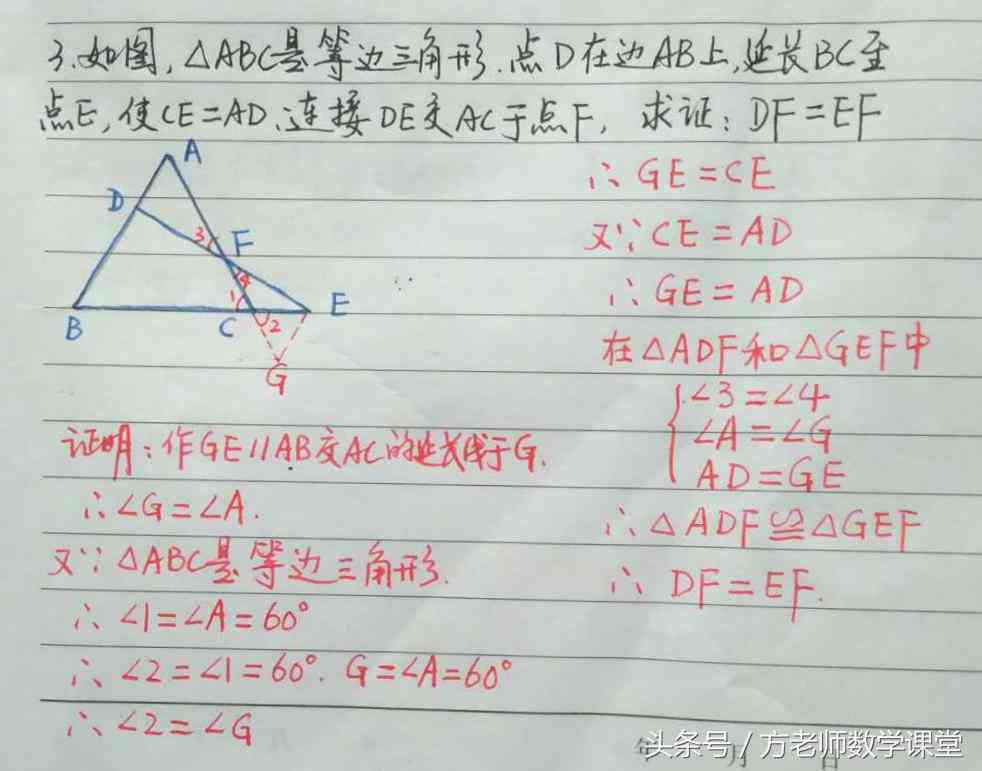 3.如图,△ABC是等边三角形.点D在边AB上,延长BC至
点E,使CE=AD.连接DE交AC于点F, 求证:DF=EF
A
D
3
F
4
1
B
C
2
E
G
证明:作GE//AB交AC的延长线于G.
∴∠G=∠A.
又∵△ABC是等边三角形.
∴∠1=∠A=60°
∴∠2=∠1=60°. G=∠A=60°
∴∠2=∠G
∴GE=CE
又∵CE=AD
∴GE=AD
在△ADF和△GEF中
∠3=∠4
∠A=∠G
AD=GE
∴△ADF≌△GEF
∴DF=EF.
年 月 日
头条号/方老师数学课堂